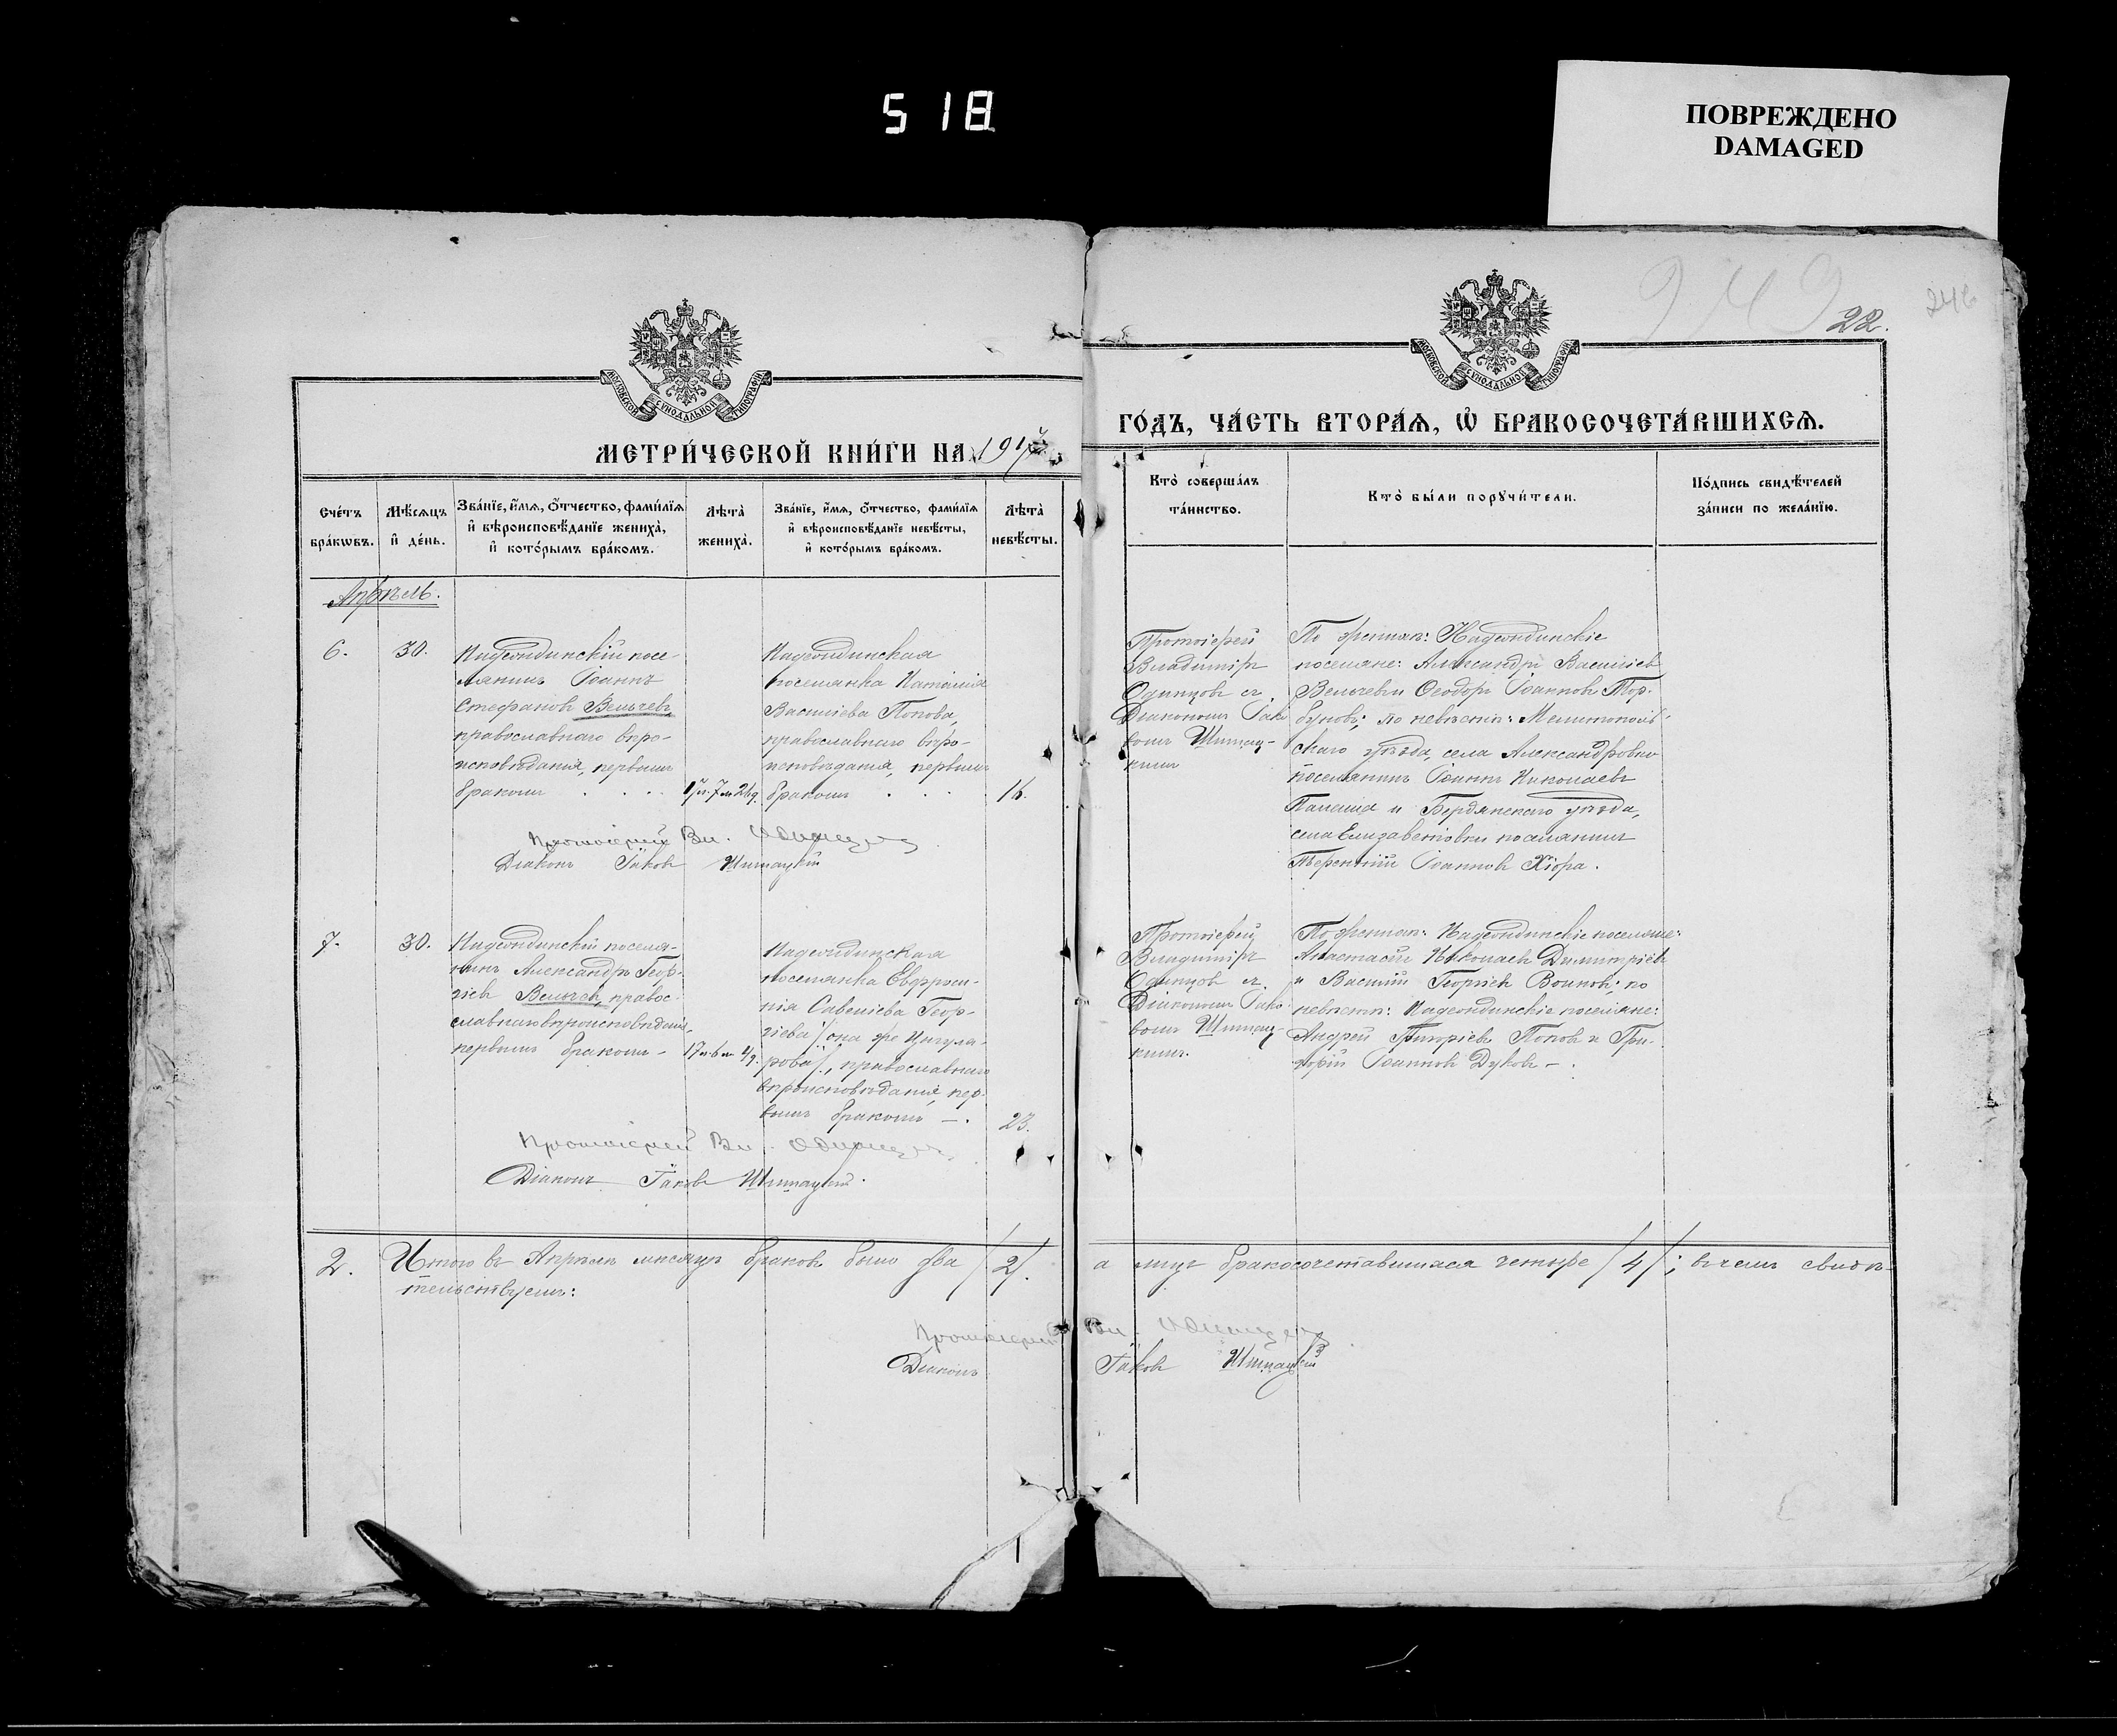 518
ПОВРЕЖДЕНО
DAMAGED
246
22.
МОСКОВСКОЙ СѴНОДАЛЬНОЙ ТИПОГРАФІИ
МОСКОВСКОЙ СѴНОДАЛЬНОЙ ТИПОГРАФІИ
МЕТРИ́ЧЕСКОЙ КНИ́ГИ НА 1917
ГО́ДЪ, ЧА́СТЬ ВТОРА́Ѧ, Ѽ БРАКОСОЧЕТА́ВШИХСѦ.
Сче́тъ
бра́кѡвъ.
Мѣ́сѧцъ
и҆ де́нь.
Зва́нїе, и҆́мѧ, ѻ҆́тчество, фами́лїѧ
и҆ вѣроисповѣ́данїе жениха̀,
и҆ кото́рымъ бра́комъ.
Лѣта̀
жениха̀.
Зва́нїе, и҆́мѧ, ѻ҆́тчество, фами́лїѧ
и҆ вѣроисповѣ́данїе невѣ́сты,
и҆ кото́рымъ бра́комъ.
Лѣта̀
невѣ́сты.
Кто̀ соверша́лъ
та́инство.
Кто̀ бы́ли порꙋчи́тели.
По́дпись свидѣ́телей
за́писи по жела́нїю.
Апрѣль.
6.
30.
Надеждинскій посе-
лянинъ Іоаннъ
Стефановъ Вельчевъ,
православнаго вѣро-
исповѣданія, первымъ
бракомъ . . .
Надеждинская
поселянка Наталія
Василіева Попова,
православнаго вѣро-
исповѣданія, первымъ
бракомъ . . .
16.
Протоіерей
Владиміръ
Одинцовъ съ
Діакономъ Іако
вомъ Шипац-
кимъ
По женихѣ: Надеждинскіе
поселяне: Александръ Василіевъ
Вельчевъ и Ѳеодоръ Іоанновъ Тор-
буновъ; по невѣстѣ: Мелитополь-
скаго уѣзда, села Александровки
поселянинъ Іоаннъ Николаевъ
и Бердянскаго уѣзда,
села Елизаветовки поселянинъ
Терентій Іоанновъ Хіора.
Протоіерей Вл. Одинцовъ
Діаконъ Іаковъ Шипацкій
7.
30.
Надеждинскій поселя-
нинъ Александръ Геор-
гіевъ Вельчевъ, правос-
славнаго вѣроисповѣданія,
первымъ бракомъ -
Надеждинская
поселянка Евфроси-
нія Савеліева Геор-
гіева /она же Цигуля-
рова/, православнаго
вѣроисповѣданія, пер-
вымъ бракомъ - .
23.
Протоіерей
Владиміръ
Одинцовъ съ
Діакономъ Іако-
вомъ Шипац-
кимъ.
По женихѣ: Надеждинскіе поселяне:
Анастасій Николаевъ Димитріевъ
и Василій Георгіевъ Волковъ; по
невѣстѣ: Надеждинскіе поселяне:
Андрей Григоріевъ Поповъ и Гри-
горій Іоанновъ Дуковъ - .
Протоіерей Вл. Одинцовъ
Діаконъ Іаковъ Шипацкій.
2. Итого въ Апрѣлѣ мѣсяцѣ браковъ было два /2/. а лицъ бракосочетавшихся четыре /4/; въ чемъ свидѣ-
тельствуемъ:
Протоіерей Вл. Одинцовъ
Діаконъ Іаковъ Шипацкій